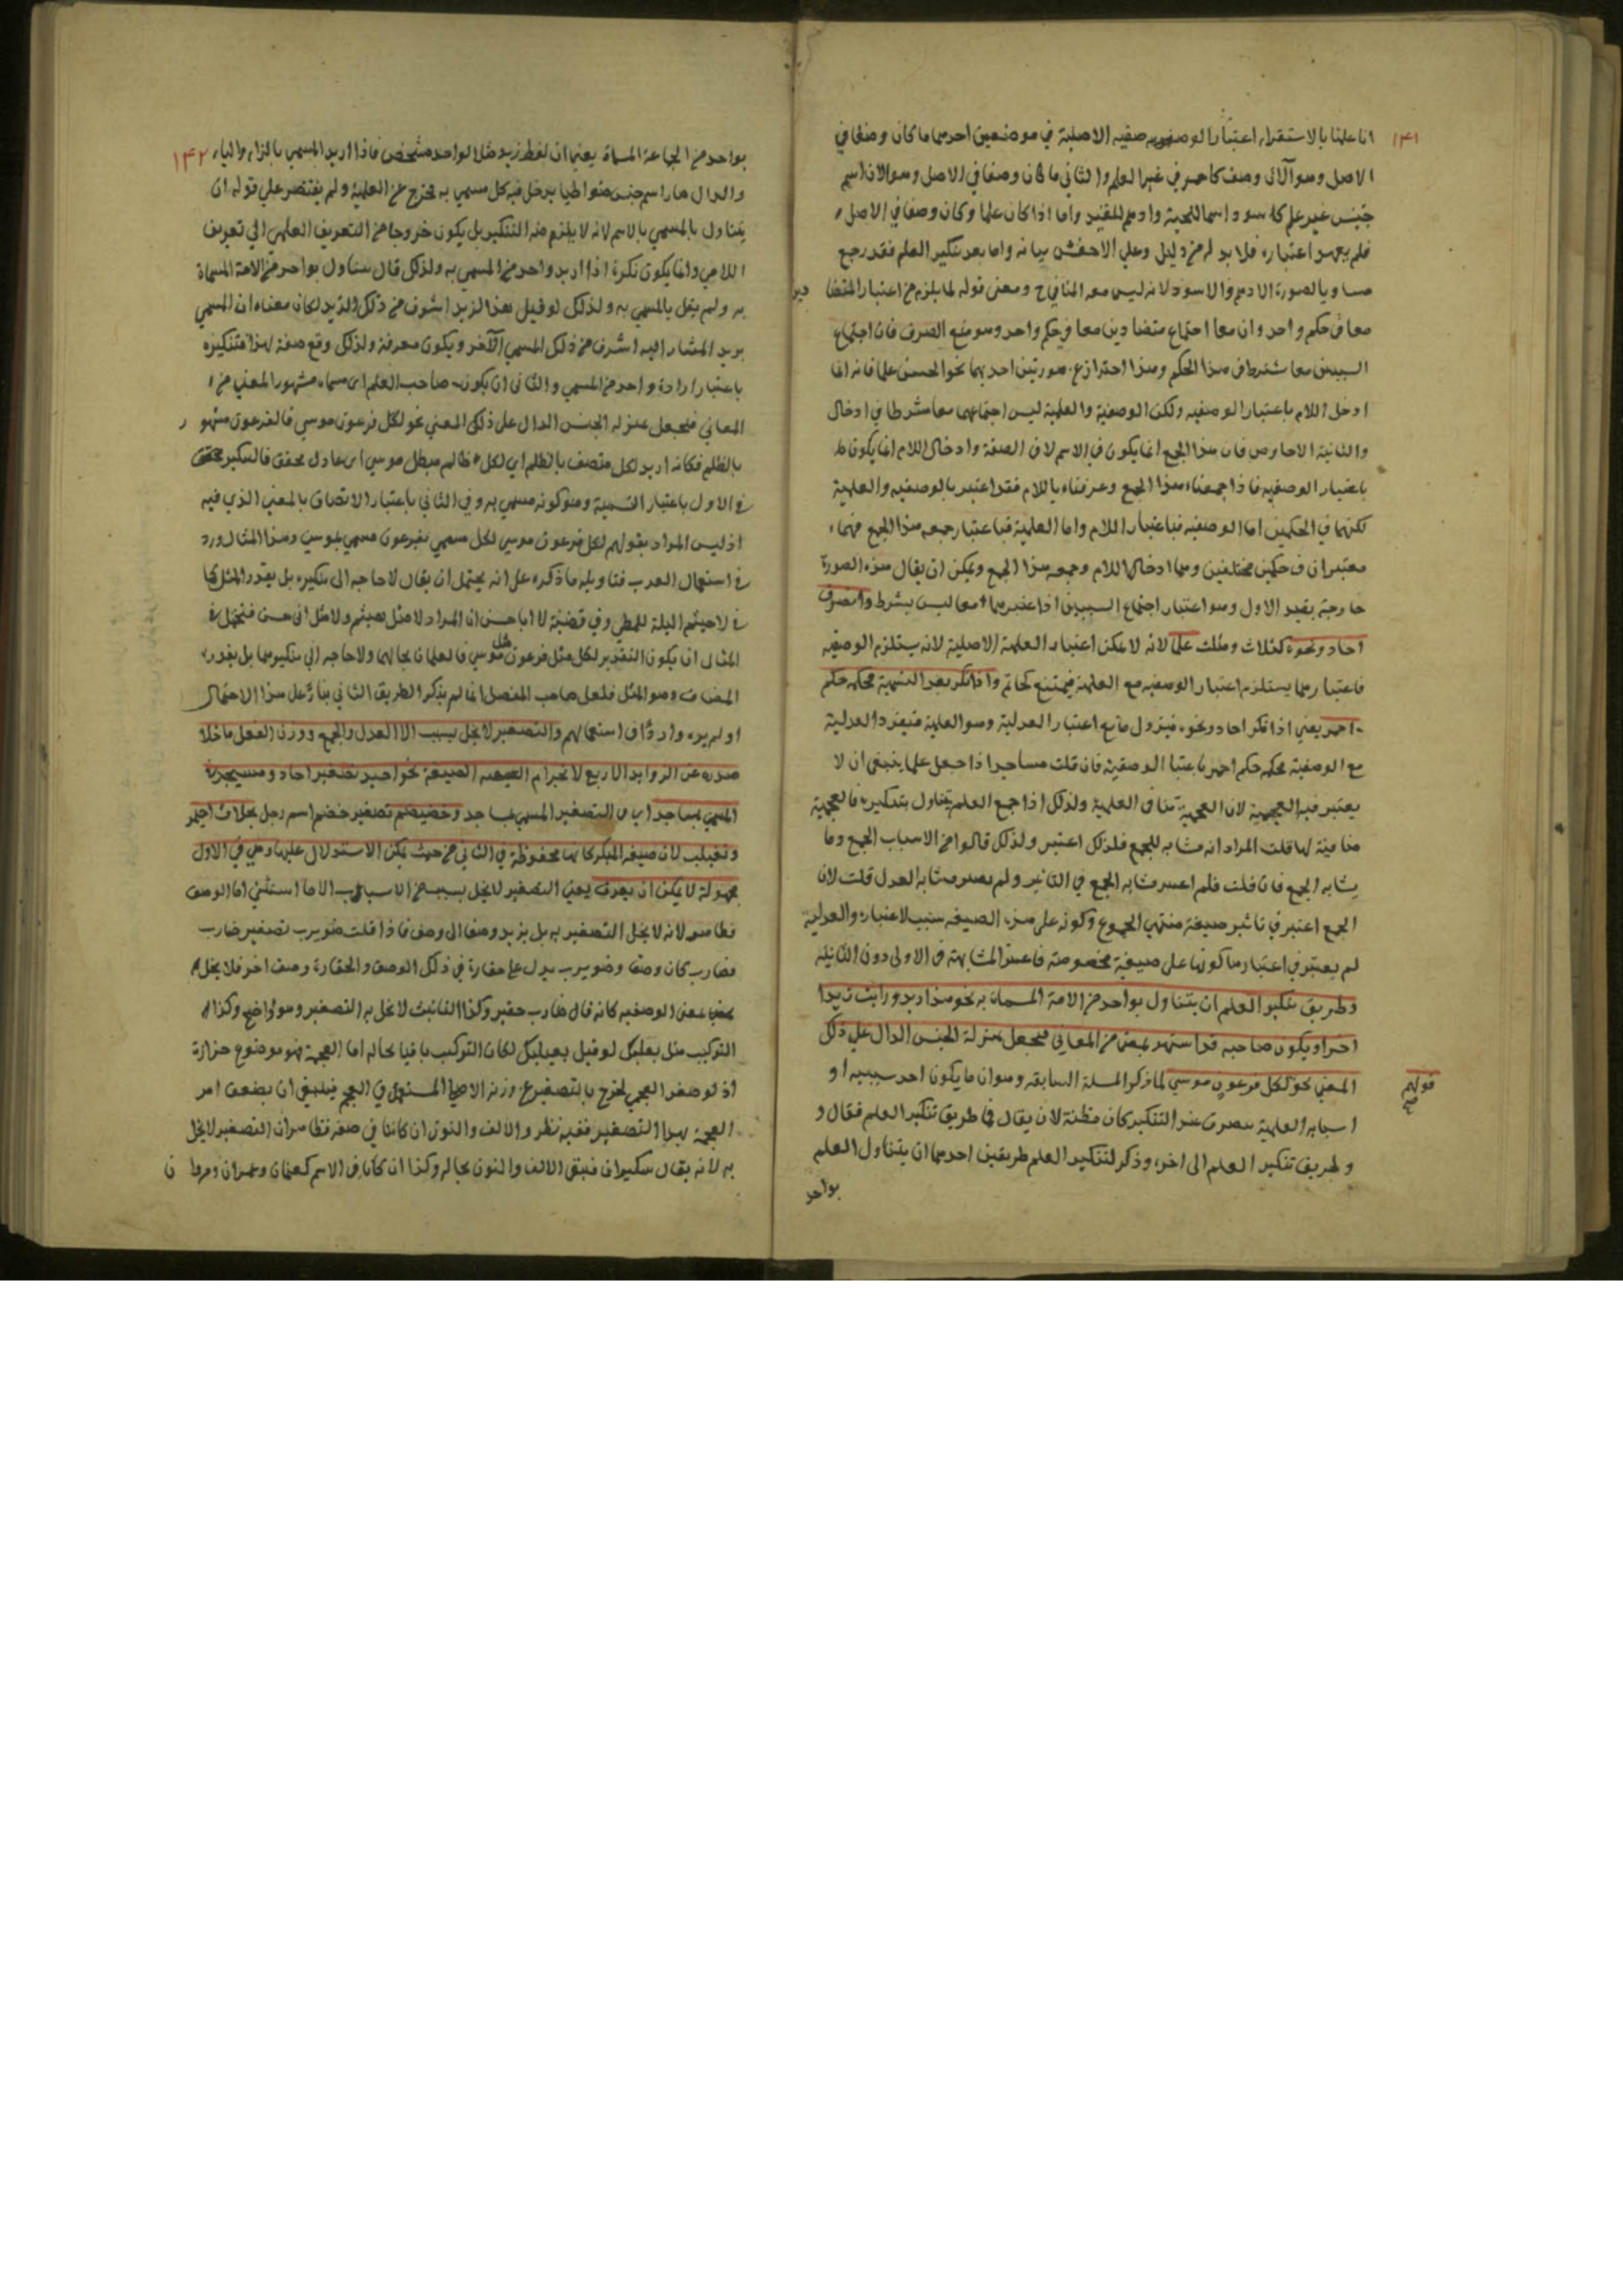 ١٤١
انا علمنا بالاستقراء اعتبار الوصفية الاصلية في موضعين احدهما ما كان وصفا في
الاصل وهو الآن وصف كاحمر في غير العلم والثاني ما كان وصفا في الاصل وهو الان اسم
جنس غير علم كاسود اسما للحية وادهم للقيد واما اذا كان علما وكان وصفا في الاصل
فلم يعهد اعتباره فلا بد له من دليل وعلى الاخفش بيانه واما بعد تنكير العلم فقد رجع
مساويا لصورة الادهم والاسود لانه ليس معه المنافي ح ومعنى قوله لما يلزم من اعتبار المتضا دين
معا في حكم واحد وان معا اجتماع متضادين معا في حكم واحد وهو منع الصرف فان اجتماع
السببين معا شرط في هذا الحكم وهذا احتراز عن صورتين احديهما نحو الحسن علما فانه انما
ادخل اللام باعتبار الوصفية ولكن الوصفية والعلمية ليس اجتماعهما معا شرطا في ادخال
والثانية الاحاوص فان هذا الجمع انما يكون في الاسم لا في الصفة وادخال اللام انما يكون
باعتبار الوصفية فاذا جمعناه هذا الجمع وعرفناه باللام فقد اعتبر بالوصفية والعلمية
لكنهما في الحكمين اما الوصفية فباعتبار اللام واما العلمية فباعتبار جمعه هذا الجمع فهما
معتبران في حكمين مختلفين وهما ادخال اللام وجمعه هذا الجمع ويمكن ان يقال هذه الصورة
خارجة بقيد الاول وهو اعتبار اجتماع السببين اذا اعتبرهما معا ليس بشرط وانصرف
احاد ونحوه كثلاث ومثلث علما لانه لا يمكن اعتبار العلمية الاصلية لانه يستلزم الوصفية
فاعتبارهما يستلزم اعتبار الوصفية مع العلمية فيمتنع كحاتم واذا نكر بعد التسمية فحكمه حكم
احمر يعني اذا نكر احاد ونحوه فيزول مانع اعتبار العدلية وهو العلمية فيفرد العدلية
مع الوصفية فحكمه حكم احمر باعتبار الوصفية فان قلت مساجد اذا جعل علما ينبغي ان لا
يعتبر فيه الجمعية لان الجمعية تنافي العلمية ولذلك اذا جمع العلم يتناول بتنكيره فالجمعية
منافية لها قلت المراد انه مشابه للجمع فلذلك اعتبر ولذلك قالوا من الاسباب الجمع وما
يشابه الجمع فان قلت فلم اعتبر مشابه الجمع في التاثير ولم يعتبر مشابه العدل قلت لان
الجمع اعتبر في تاثيره صيغة منتهى الجموع وكونه على هذه الصيغة سبب لاعتباره والعدلية
لم يعتبر في اعتبارها كونها على صيغة مخصوصة فاعتبر المشابهة في الاولى دون الثانية
وطريق تنكير العلم ان يتناول بواحد من الامة المسماة به نحو هذا زيد ورايت زيدا
اخر او يكون صاحبه قد اشتهر بمعنى من المعاني فيجعل بمنزلة الجنس الدال على ذلك
المعنى نحو لكل فرعون موسى لما ذكر المسئلة السابقة وهو ان ما يكون احد سببيه او
قولهم
صح
اسبابه العلمية يصرف عند التنكير كان مظنة لان يقال فما طريق تنكير العلم فقال و
وطريق تنكير العلم الى اخره وذكر لتنكير العلم طريقين احدهما ان يتناول العلم
بواحد
١٤٢
بواحد من الجماعة المسماة يعني ان لفظ زيد مثلا لواحد مشخص فاذا اريد المسمى بالزاء والياء
والدال صار اسم جنس متواطيا يدخل فيه كل مسمى به فخرج عن العلمية ولم يقتصر على قوله ان
يتناول بالمسمى بالاسم لانه لا يلزم منه التنكير بل يكون خروجا من التعريف العلمي الى تعريف
اللامي وانما يكون نكرة اذا اريد واحد من المسمى به ولذلك قال يتناول بواحد من الامة المسماة
به ولم يقل بالمسمى به ولذلك لو قيل هذا الزيد اشرف من ذلك الزيد لكان معناه ان المسمى
بزيد المشار اليه اشرف من ذلك المسمى الآخر ويكون معرفة ولذلك وقع صفة لهذا فتنكيره
باعتبار ارادة واحد من المسمى والثاني ان يكون صاحب العلم اي مسماه مشهورا لمعنى من
المعاني فيجعل بمنزلة الجنس الدال على ذلك المعنى نحو لكل فرعون موسى فالفرعون مشهور
بالظلم فكانه اريد لكل متصف بالظلم اي لكل ظالم مبطل موسى اي عادل محق فالتنكير متحقق
في الاول باعتبار التسمية وهو كونه مسمى به وفي الثاني باعتبار الاتصاف بالمعنى الذي فيه
اذ ليس المراد بقولهم لكل فرعون موسى لكل مسمى بفرعون مسمى بموسى وهذا المثال ورد
في استعمال العرب فتاويله ما ذكره على انه يحتمل ان يقال لا حاجة الى تنكيره بل يقدر المثل كما
في لا هيثم الليلة للمطي وفي قضية لا ابا حسن ان المراد لا مثل هيثم ولا مثل ابي حسن فيحتمل في
المثال ان يكون التقدير لكل مثل فرعون مثل موسى فالعلمان بحالهما ولا حاجة الى تنكيرهما بل يقدر
المضاف وهو المثل فلعل صاحب المفصل انما لم يذكر الطريق الثاني بناء على هذا الاحتمال
او لم يره واردا في استعمالهم والتصغير لا يخل بسبب الا العدل والجمع ووزن الفعل ما خلا
صدره عن الزوايد الاربع لانخرام الصيغة نحو احيد تصغير احاد ومسيجد في
المسمى بمساجد اي في التصغير المسمى بمساجد وخضيضم تصغير خضم اسم رجل بخلاف احيمر
وتغيلب لان صيغة المكبر كانها محفوظة في الثاني من حيث يمكن الاستدلال عليها وهي في الاول
مجهولة لا يمكن ان يعرف يعني التصغير لا يخل بسبب من الاسباب الا ما استثني اما الوصف
فظاهر لانه لا يخل التصغير به بل يزيد وصفا الى وصف فاذا قلت ضويرب تصغير ضارب
فضارب كان وصفا وضويرب يدل على حقارة في ذلك الوصف والحقارة وصف اخر فلا يخل
بمعنى الوصفية كانه قال ضارب حقير وكذا التانيث لا يخل به التصغير وهو واضح وكذا
التركيب مثل بعلبك لو قيل بعيلبك لكان التركيب باقيا بحاله اما العجمة فهو موضوع حزازة
اذ لو صغر العجمي لخرج بالتصغير عن وزنه الاصلي المستعمل في العجم فينبغي ان يضعف امر
العجمة بهذا التصغير ففيه نظر والالف والنون ان كانتا في صفة فظاهر ان التصغير لا يخل
به لانه يقال سكيران فبقي الالف والنون بحاله وكذا ان كانا في الاسم كعثمان وعمران ومروا ن